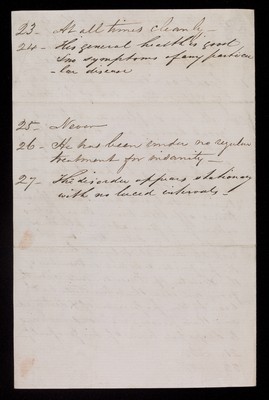 23- At all times cleanly -
24- His general health is good
& no symptoms of any particu
-lar disease
25- Never
26- He has been under no regular
treatment for insanity -
27- The disorder appears stationary
with no lucid intervals -